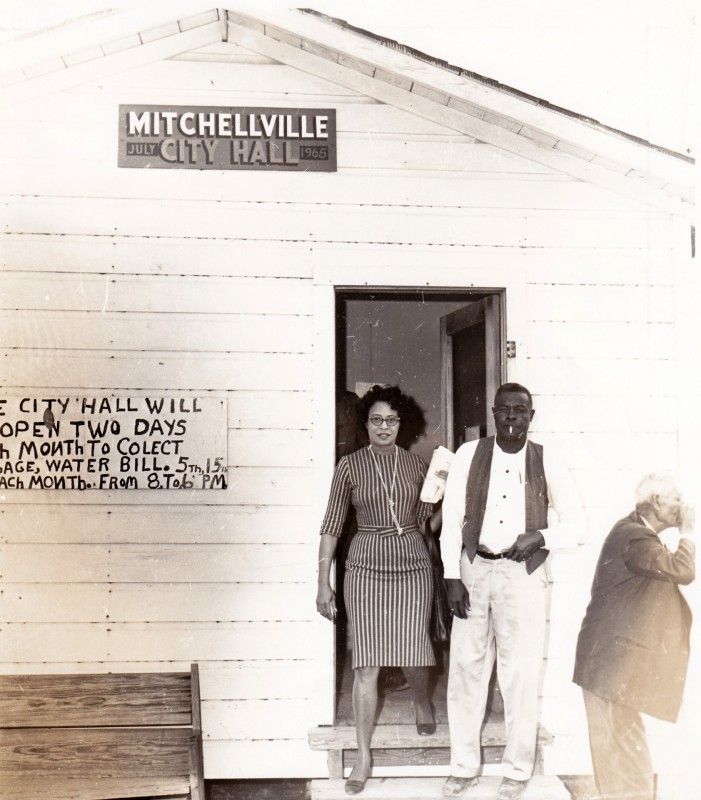 MITCHELLVILLE
JULY CITY HALL 1965
E CITY HALL WILL
OPEN TWO DAYS
H MONTH TO COLECT
BAGE, WATER BILL. 5TH, 15TH
ACH MONTH. FROM 8 TO 6 PM